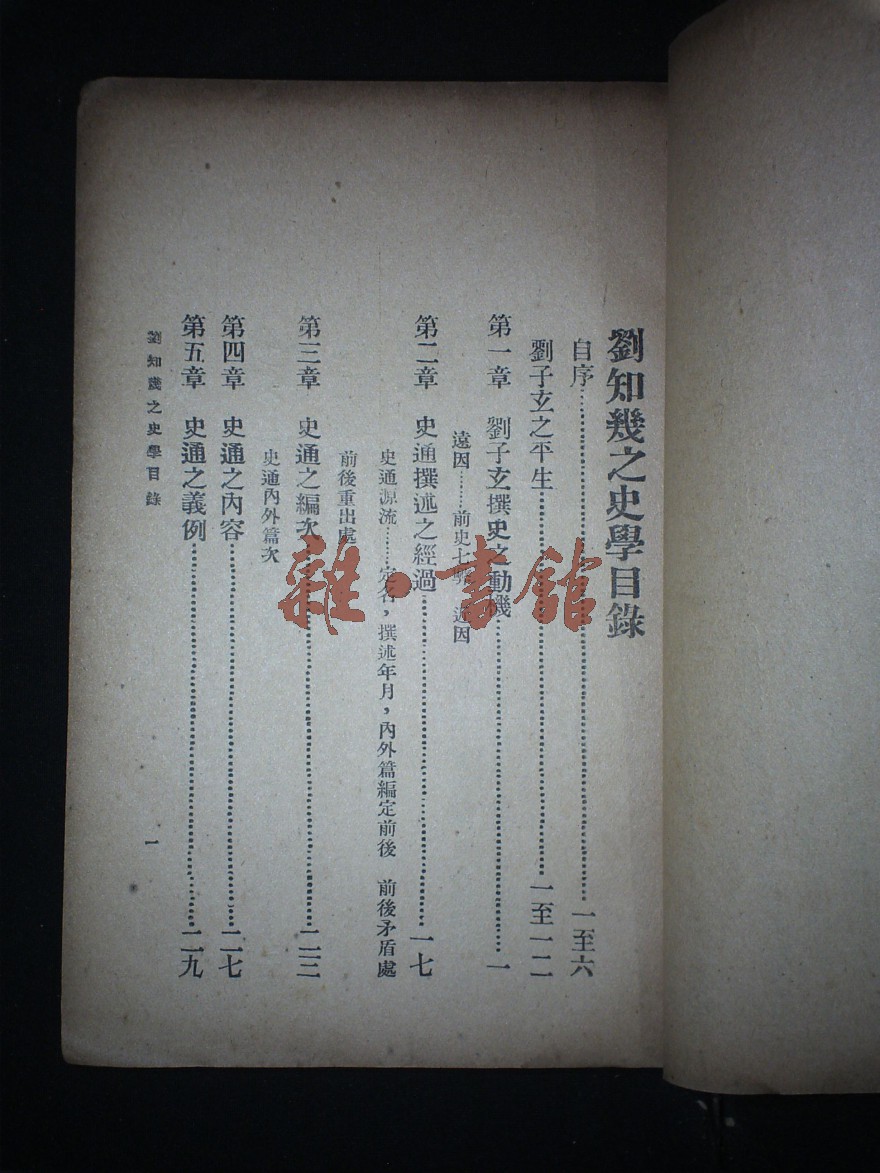 劉知幾之史學目錄
自序……………………一至六
劉子玄之平生……………………一至一二
第一章　劉子玄撰史之動機……………………一
遠因………前史七　近因
第二章　史通撰述之經過……………………一七
史通源流………定名，撰述年月，內外篇編定前後　前後矛盾處
前後重出處
第三章　史通之編次……………………二三
史通內外篇次
第四章　史通之內容……………………二七
第五章　史通之義例……………………二九
劉知幾之史學目錄
一
雜·書館